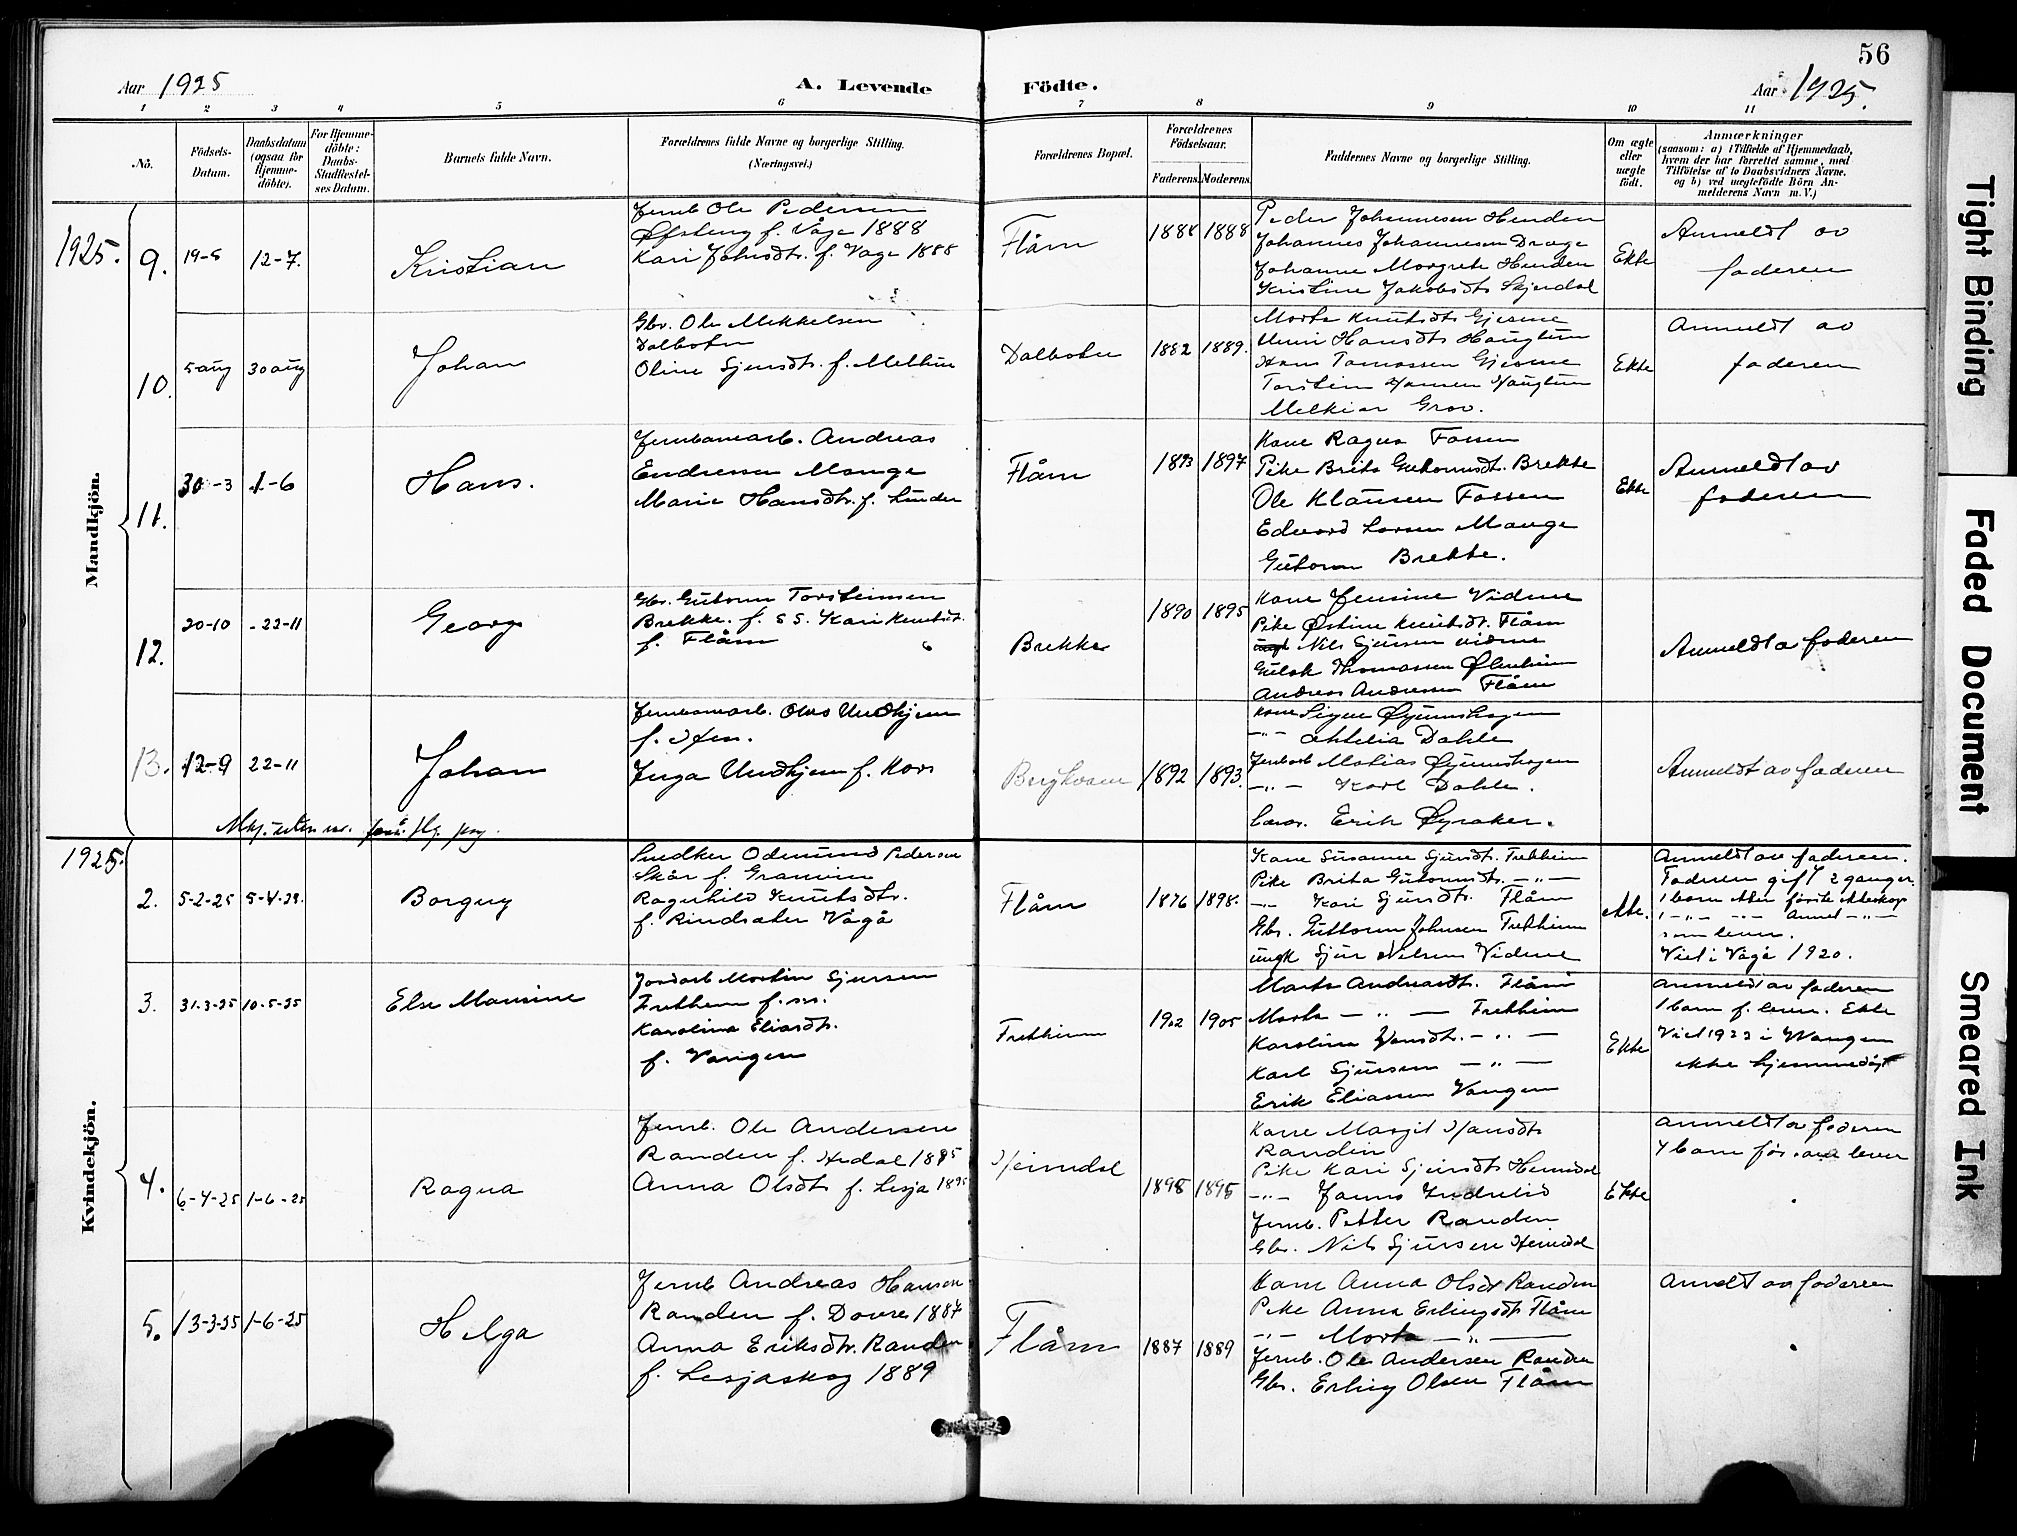 56
Aar 1925
A. Levende
Födte.
Aar 1925.
1 2 3 4 5 6 7 8 9 10 11
No.
Födsels-Datum.
Daabsdatum (ogsaa for Hjemme-döbte).
For Hjemme-döbte: Daabs-Stadfæstel-ses Datum.
Barnets fulde Navn.
Forældrenes fulde Navne og borgerlige Stilling. (Næringsvei.)
Forældrenes Bopæl.
Forældrenes Födselsaar.
Faderens. Moderens.
Faddernes Navne og borgerlige Stilling.
Om ægte eller uægte födt.
Anmærkninger
(saasom: a) i Tilfælde af Hjemmedaab,
hvem der har forrettet samme, med
Tilföielse af to Daabsvidners Navne.
og b) ved uægtefödte Börn An-
melderens Navn m. V.)
Mandkjön.
1925.
9. 12-7. Kristian
Jernb Ole Pedersen
Øfsteng f. Våge 1888
Kari Johnsdtr. f. Vage 1888
Flåm
1888
Peder Johannesen Henden
Johannes Johannesen Drage
Johanne Margrete Henden
Kristine Jakobsdtr Skjerdal
Ekte
Anmeldt av
faderen
10. 5 aug 30 aug Johan
Gbr. Ole Mikkelsen
Dalbotn
Oline Sjursdtr. f. Melhus
Dalbotn
1882 1889.
Marta Knutsdtr Gjerme
Hansdtr Haugtun
Hans Tomassen Gjerme
Torstein Hansen Haugtun
Melkior Grov.
Ekte
Anmeldt av
faderen
11. 30-3 1-6 Hans.
Jernbanearb. Andreas
Endresen Mange
Marie Hansdtr. f. Lunder
Flåm
1893 1897
Kone Ragna Fossen
Pike Brita Guttormsdt. Brekke
Ole Klausen Fossen
Edvard Larsen Mange
Guttorm Brekke.
Ekte
Anmeldt av
faderen
12. 20-10 22-11 Georg
Gbr. Guttorm Torsteinsen
Brekke. f. s s. Kari Knutsdt.
f. Flåm
Brekke
1890 1895
Kone Jensine Vidme
Pike Østine Knutsdt. Flåm
ungk Nils Sjursen Vidme
Thomassen
Andreas Andressen Flåm
Anmeldt a faderen
13. 12-9 22-11 Johan
Jernbanearb. Undhjem
Inga Undhjem f. Kors
1892 1893.
Kone Signe Øyumshagen
-"- Dahle
Jernbarb Matias Øyumshagen
-"- Karl Dahle.
Erik Øyraker.
Anmeldt av faderen
Kvindekjön.
1925.
2. 5-2-25 Borgny
Snedker Odmund Pedersen
Skår f. Granvin
Ragnhild Knutsdtr.
f. Rindsæter Vågå
Flåm
1876 1898.
Kone Susanne Sjursdt. Fretheim
Pike Brita Guttormsdt. -"-
-"- Kari Sjursdt. Flåm
Gbr. Guttorm Johnsen Fretheim
ungk Sjur Nelsen Vidme
Anmeldt av faderen.
Faderen gift 2 ganger.
1 barn etter første ekteskap
1 -"- -"- annet -"-
som lever.
Viet i Vågå 1920.
3. 31-3-25 10-5-25 Else Marine
Jordarb Martin Sjursen
Fretheim f. ss.
Karolina Eliasdt.
f. Vangen
Fretheim
1902 1905
Marta Andreasdt. Flåm
Marta -"- Fretheim
Karoline Hansdt. -"-
Karl Sjursen -"-
Erik Eliassen Vangen
Ekte
Anmeldt av faderen
1 barn f. lever. Ekte
Viet 1923 i Wangen
ikke hjemmedøpt
4. 6-4-25 1-6-25 Ragna
Jernb. Ole Andersen
Randen f. Hedal 1895
Anna Olsdtr f. Lesja 1895
Heimdal
1895 1895
Kone Margit Hansdtr
Randen
Pike Kari Sjursdtr Heimdal
Jernb. Petter Randen
Gbr. Nils Sjursen Heimdal
Ekte
Anmeldt av faderen
4 barn før lever
5. 13-3-25 1-6-25 Helga
Jernb Andreas Hansen
Randen f. Dovre 1887
Anna Eriksdtr. Randen
f. Lesjaskog 1889
Flåm
1887 1889
Kone Anna Olsdt Randen
Pike Anna Erlingsdtr Flåm
-"- Marta -"-
Jernb. Ole Andersen Randen
Gbr. Erling Olsen Flåm
Anmeldt av faderen
Tight Binding
Faded Document
Smeared Ink